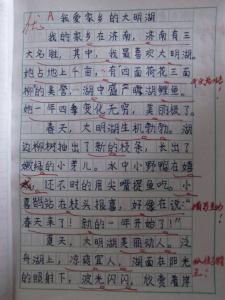 优 A
我爱家乡的大明湖
我的家乡在济南,济南有三
大名胜,其中,我最喜欢大明湖。
她占地上千亩,有四面荷花三面
柳的美誉,湖中盛产鲤湖鲤鱼。
她一年四季变化无穷,美丽极了。
春天,大明湖生机勃勃。湖
边柳树抽出了新的枝条,长出了
嫩绿的小芽儿。水中小野鸭在嬉
戏,还不时的用尖嘴捉鱼吃。小
喜鹊站在枝头报喜,好像在说:"
春天来了!新的一年开始了!"
夏天,大明湖美丽动人。泛
舟湖上,凉爽宜人。湖面在阳光
的照射下,波光闪闪,欣赏着岸